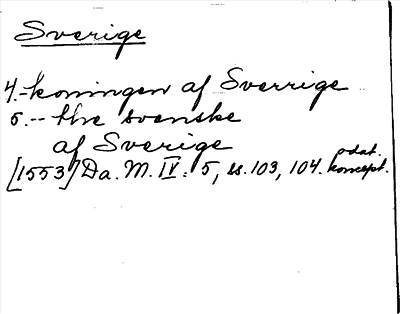 Sverige
4.- koningen af Sverrige
5.-- the svenske
af Sverige
[1553] Da. M. IV: 5, ss. 103, 104. odat. koncept.